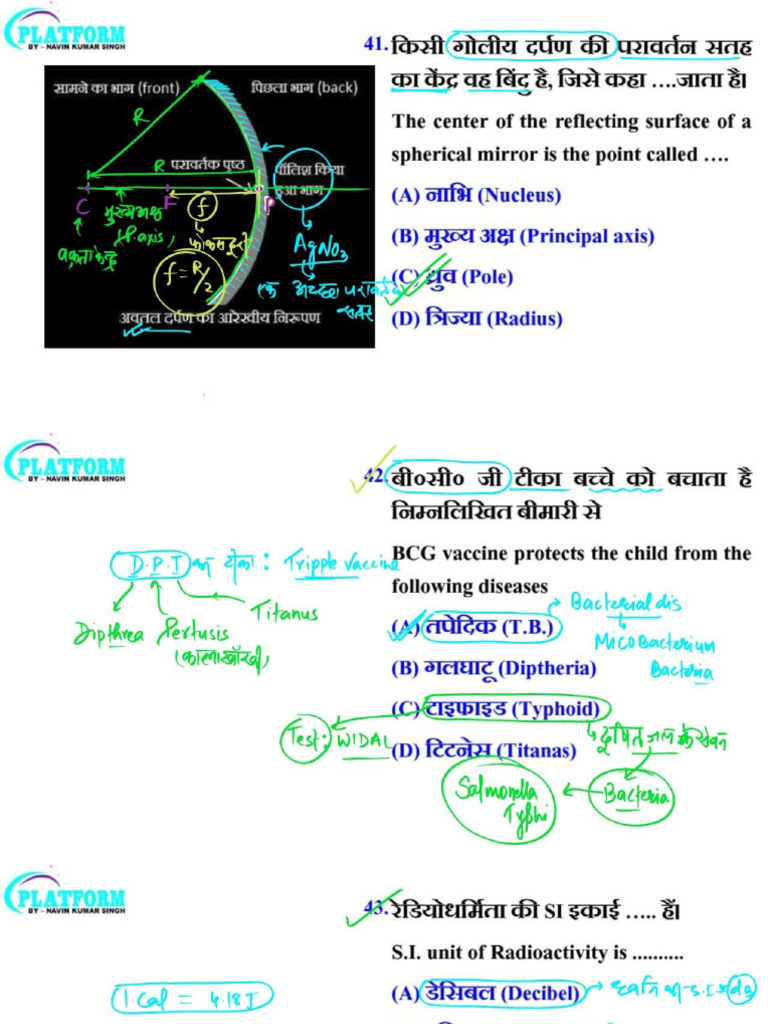 PLATFORM
BY - NAVIN KUMAR SINGH
41. किसी गोलीय दर्पण की परावर्तन सतह
का केंद्र वह बिंदु है, जिसे कहा ....जाता है।
The center of the reflecting surface of a
spherical mirror is the point called ....
(A) नाभि (Nucleus)
(B) मुख्य अक्ष (Principal axis)
(C) ध्रुव (Pole)
(D) त्रिज्या (Radius)
सामने का भाग (front)
पिछला भाग (back)
R
R
परावर्तक पृष्ठ
पॉलिश किया
हुआ भाग
C
F
P
f
मुख्य अक्ष
(P.axis)
वक्रता केन्द्र
फोकस दूरी
f = R/2
AgNO3
एक अच्छा परावर्तक
अवतल दर्पण का आरेखीय निरूपण
PLATFORM
BY - NAVIN KUMAR SINGH
42. बी०सी० जी टीका बच्चे को बचाता है
निम्नलिखित बीमारी से
BCG vaccine protects the child from the
following diseases
(A) तपेदिक (T.B.)
(B) गलघाटू (Diptheria)
(C) टाइफाइड (Typhoid)
(D) टिटनेस (Titanas)
D.P.T का टीका : Tripple Vaccine
Dipthrea Pertusis Titanus
(कालाखाँसी)
Bacterial dis
MicoBacterium
Bacteria
Test: WIDAL
दूषित जल के सेवन
Bacteria
Salmonella
Typhi
PLATFORM
BY - NAVIN KUMAR SINGH
43. रेडियोधर्मिता की SI इकाई ..... हैं।
S.I. unit of Radioactivity is ..........
(A) डेसिबल (Decibel)
ध्वनि का S.I.
1 Cal = 4.18 J